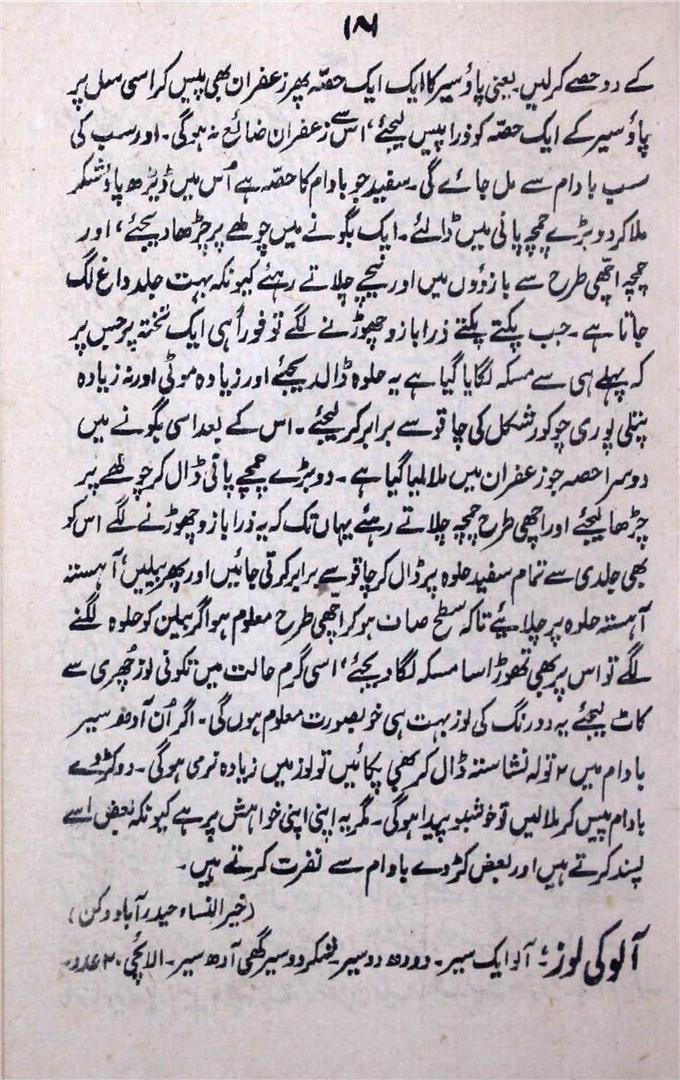 ۱۸
کے دو حصے کرلیں۔ یعنی پاؤ سیر کا ایک ایک حصّہ پھر زعفران بھی پیس کر اسی سل پر
پاؤ سیر کے ایک حصّہ کو ذرا پیس لیجئے، اس سے زعفران ضائع نہ ہوگی۔ اور سب کی
سب بادام سے مل جائے گی۔ سفید جو بادام کا حصّہ ہے اُس میں ڈیڑھ پاؤ شکر
ملا کر دو بڑے چمچہ پانی میں ڈالئے۔ ایک بگونے میں چولھے پر چڑھا دیجئے، اور
چمچہ اچھی طرح سے بازوؤں میں اور نیچے چلاتے رہئے کیونکہ بہت جلد داغ لگ
جاتا ہے۔ جب پکتے پکتے ذرا بازو چھوڑنے لگے تو فوراً ہی ایک تختہ پر جس پر
کہ پہلے ہی سے مسکہ لگایا گیا ہے یہ حلوہ ڈال دیجئے اور زیادہ موٹی اور نہ زیادہ
پتلی پوری چوکور شکل کی چاقو سے برابر کر لیجئے۔ اس کے بعد اسی بگونے میں
دوسرا حصہ جو زعفران میں ملا لیا گیا ہے۔ دو بڑے چمچے پانی ڈال کر چولھے پر
چڑھا لیجئے اور اچھی طرح چمچہ چلاتے رہئے یہاں تک کہ یہ ذرا بازو چھوڑنے لگے اس کو
بھی جلدی سے تمام سفید حلوہ پر ڈال کر چاقو سے برابر کرتی جائیں اور پھر بیلن آہستہ
آہستہ حلوہ پر چلائیے تاکہ سطح صاف ہوکر اچھی طرح معلوم ہو اگر بیلن کو حلوہ لگنے
لگے تو اس پر بھی تھوڑا سا مسکہ لگا دیجئے، اسی گرم حالت میں تکونی لوز چھری سے
کاٹ لیجئے یہ دو رنگ کی لوز بہت ہی خوبصورت معلوم ہوں گی۔ اگر اُن آدھ سیر
بادام میں ۲ تولہ نشاستہ ڈال کر بھی پکائیں تو لوز میں زیادہ نرمی ہوگی۔ دو کڑوے
بادام پیس کر ملالیں تو خوشبو پیدا ہوگی۔ مگر یہ اپنی اپنی خواہش پر ہے کیونکہ بعض اسے
پسند کرتے ہیں اور بعض کڑوے بادام سے نفرت کرتے ہیں۔
(خیر النساء حیدرآباد دکن)
آلو کی لوز: آلو ایک سیر۔ دودھ دو سیر۔ شکر دو سیر گھی آدھ سیر۔ الائچی ۲۰ عدد۔